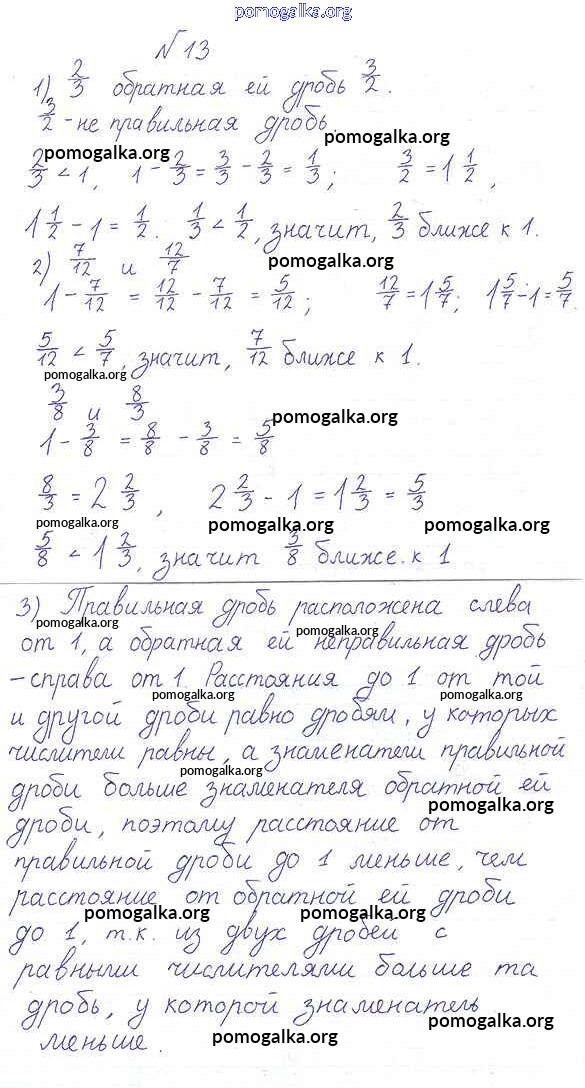 pomogalka.org
№ 13
1) 2/3 обратная ей дробь 3/2.
3/2 - не правильная дробь.
pomogalka.org
pomogalka.org
2/3 < 1, 1 - 2/3 = 3/3 - 2/3 = 1/3; 3/2 = 1 1/2,
1 1/2 - 1 = 1/2. 1/3 < 1/2, значит, 2/3 ближе к 1.
pomogalka.org
2) 7/12 и 12/7
1 - 7/12 = 12/12 - 7/12 = 5/12; 12/7 = 1 5/7; 1 5/7 - 1 = 5/7.
5/12 < 5/7, значит, 7/12 ближе к 1.
pomogalka.org
pomogalka.org
3/8 и 8/3
pomogalka.org
1 - 3/8 = 8/8 - 3/8 = 5/8
8/3 = 2 2/3, 2 2/3 - 1 = 1 2/3 = 5/3
pomogalka.org pomogalka.org pomogalka.org
5/8 < 1 2/3, значит 3/8 ближе к 1
3) Правильная дробь расположена слева
pomogalka.org pomogalka.org
от 1, а обратная ей неправильная дробь
- справа от 1. Расстояния до 1 от той
pomogalka.org pomogalka.org
и другой дроби равно дробям, у которых
числители равны, а знаменатели правильной
pomogalka.org
дроби больше знаменателя обратной ей
pomogalka.org
дроби, поэтому расстояние от
правильной дроби до 1 меньше, чем
расстояние от обратной ей дроби
pomogalka.org pomogalka.org
до 1, т.к. из двух дробей с
равными числителями больше та
дробь, у которой знаменатель
pomogalka.org
меньше.
pomogalka.org